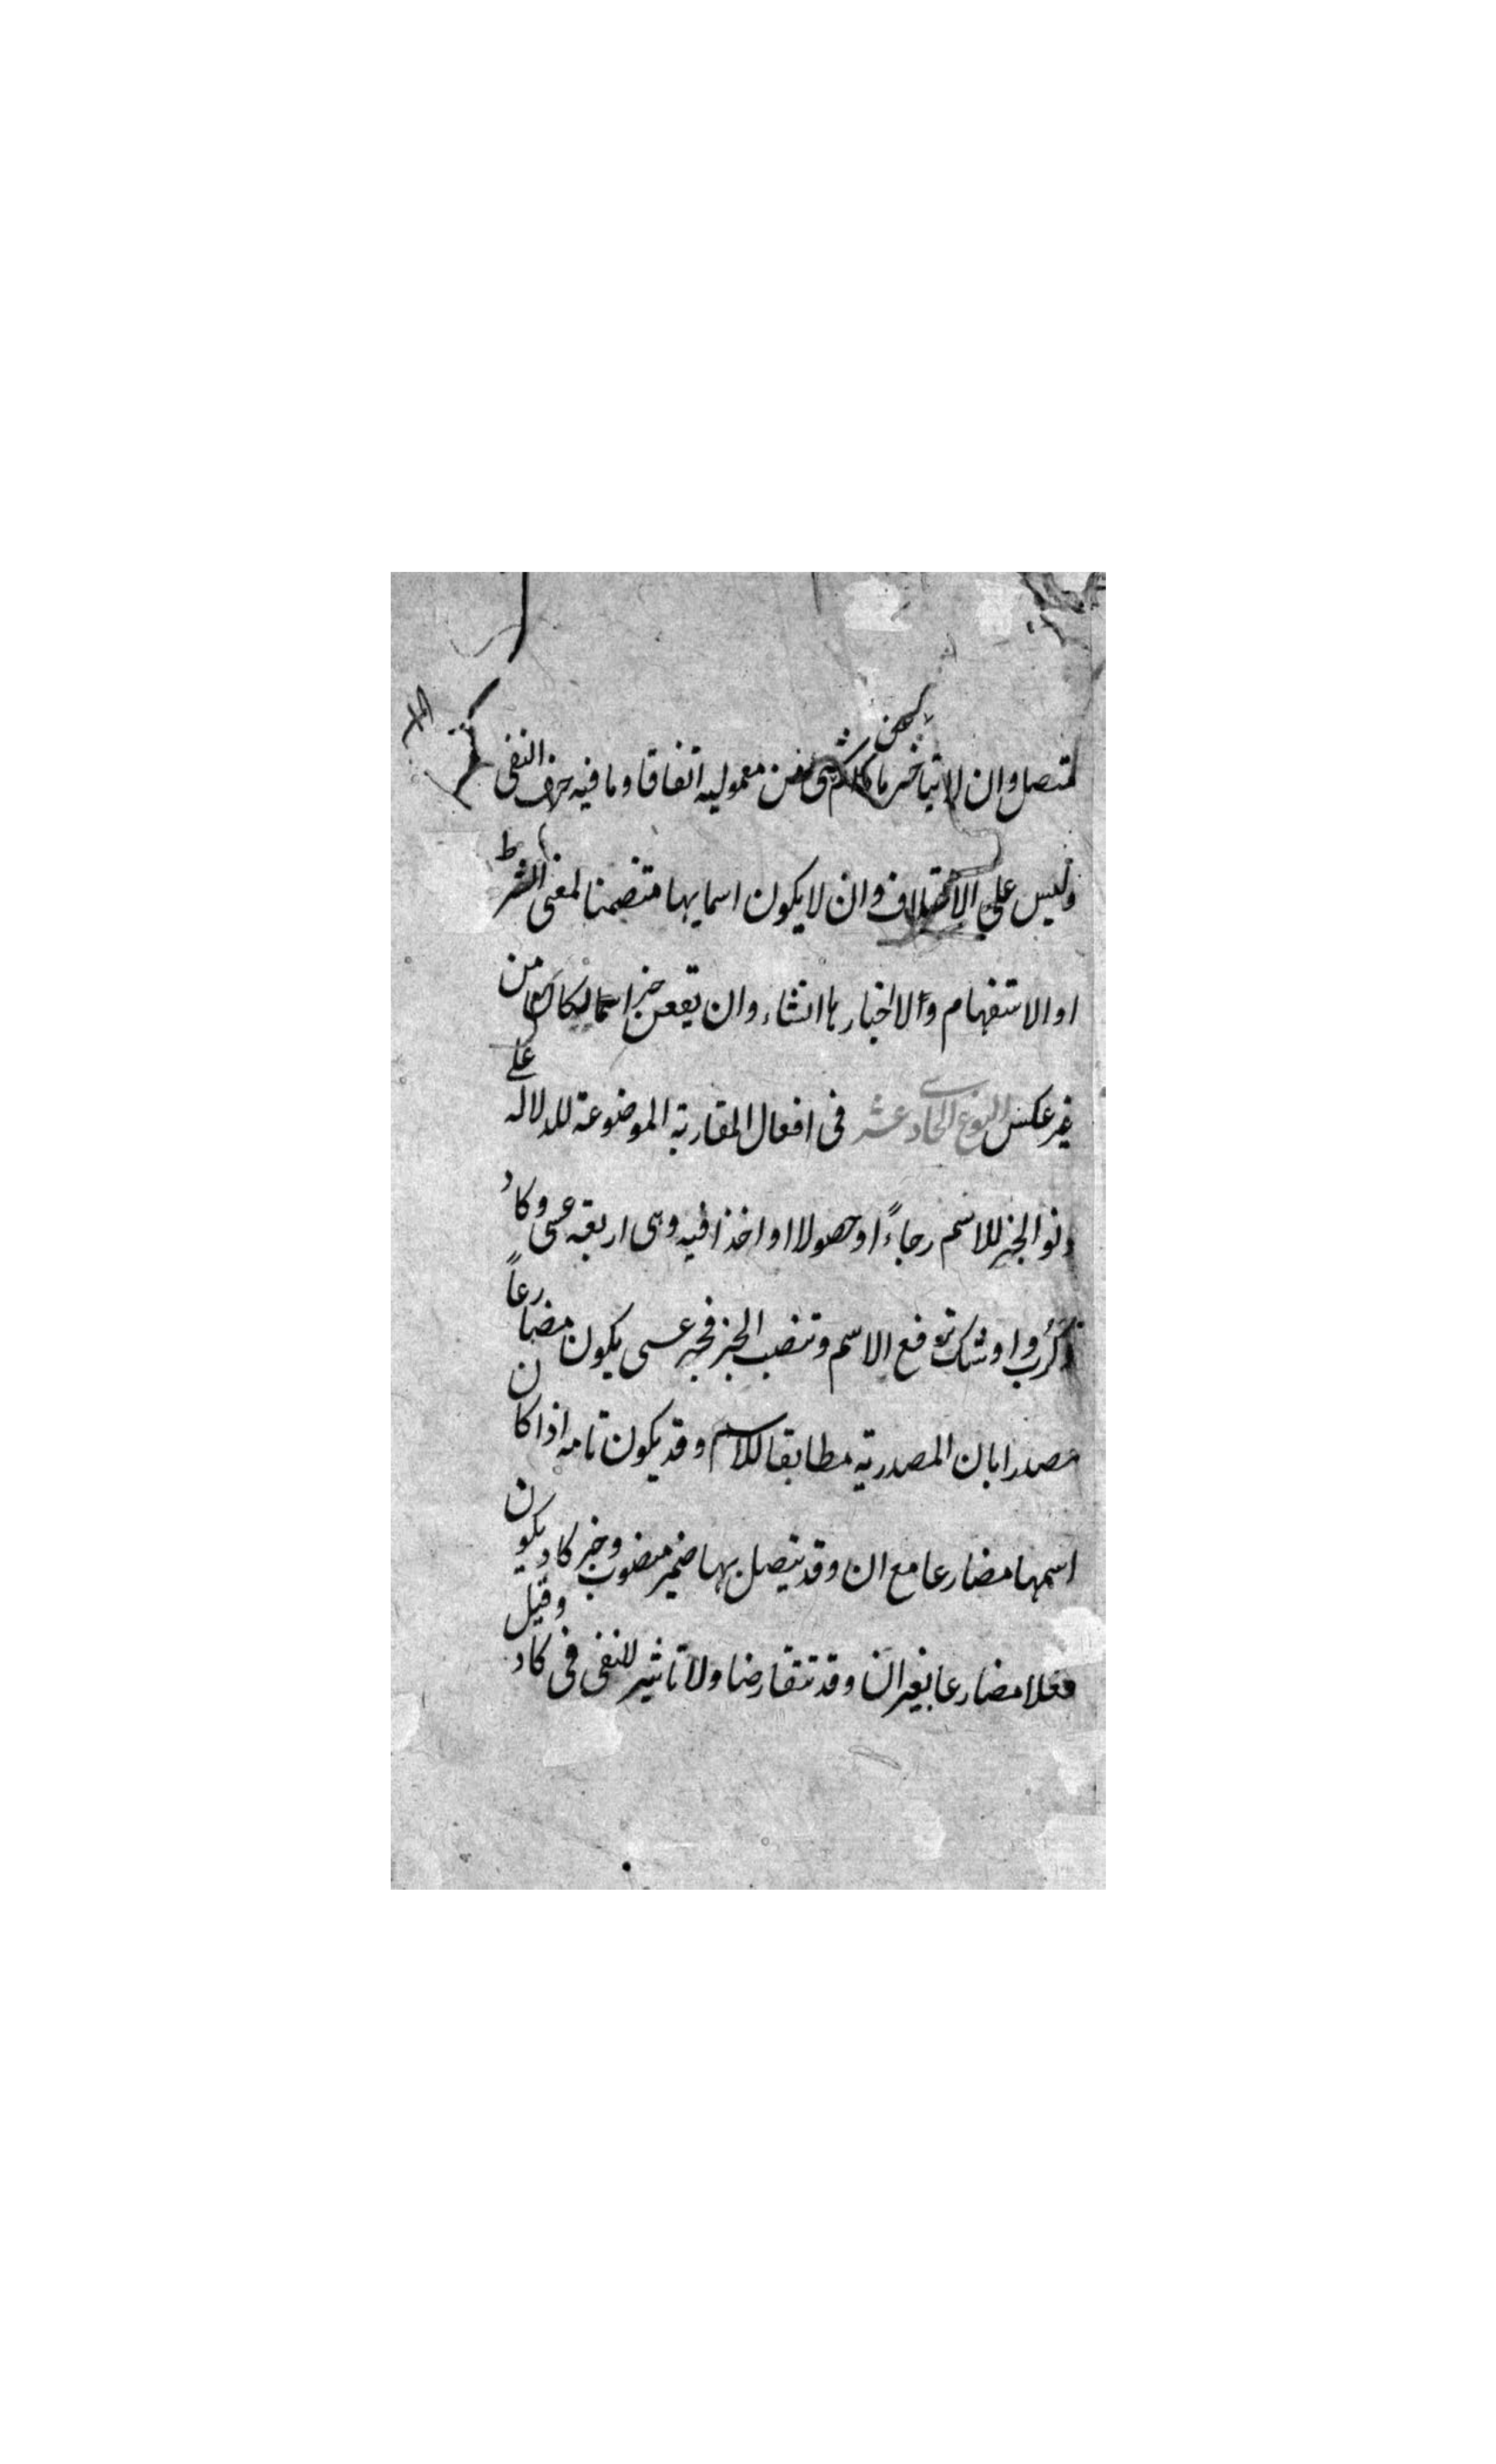 لمتصل وان لا يتاخر ما دام شى من معموليه اتفاقا وما فيه حرف النفى
وليس على الاختلاف وان لا يكون اسمايها متضمنا لمعنى الشرط
او الاستفهام ولا الاخبارها انشاء وان يقعن خبرا من
غير عكس النوع الحادى عشر فى افعال المقاربة الموضوعة للدلالة على
دنو الخبر للاسم رجاءً او حصولا او اخذا فيه وهى اربعة عسى وكاد
وكرب واوشك ترفع الاسم وتنصب الخبر فخبر عسى يكون مضارعاً
مصدرا بان المصدرية مطابقا للاسم وقد يكون تامه اذا كان
اسمها مضارعا مع ان وقد يتصل بها ضمير منصوب وخبر كاد يكون
فعلا مضارعا بغير ان وقد تتقارضا ولا تاثير للنفى فى كاد وقيل